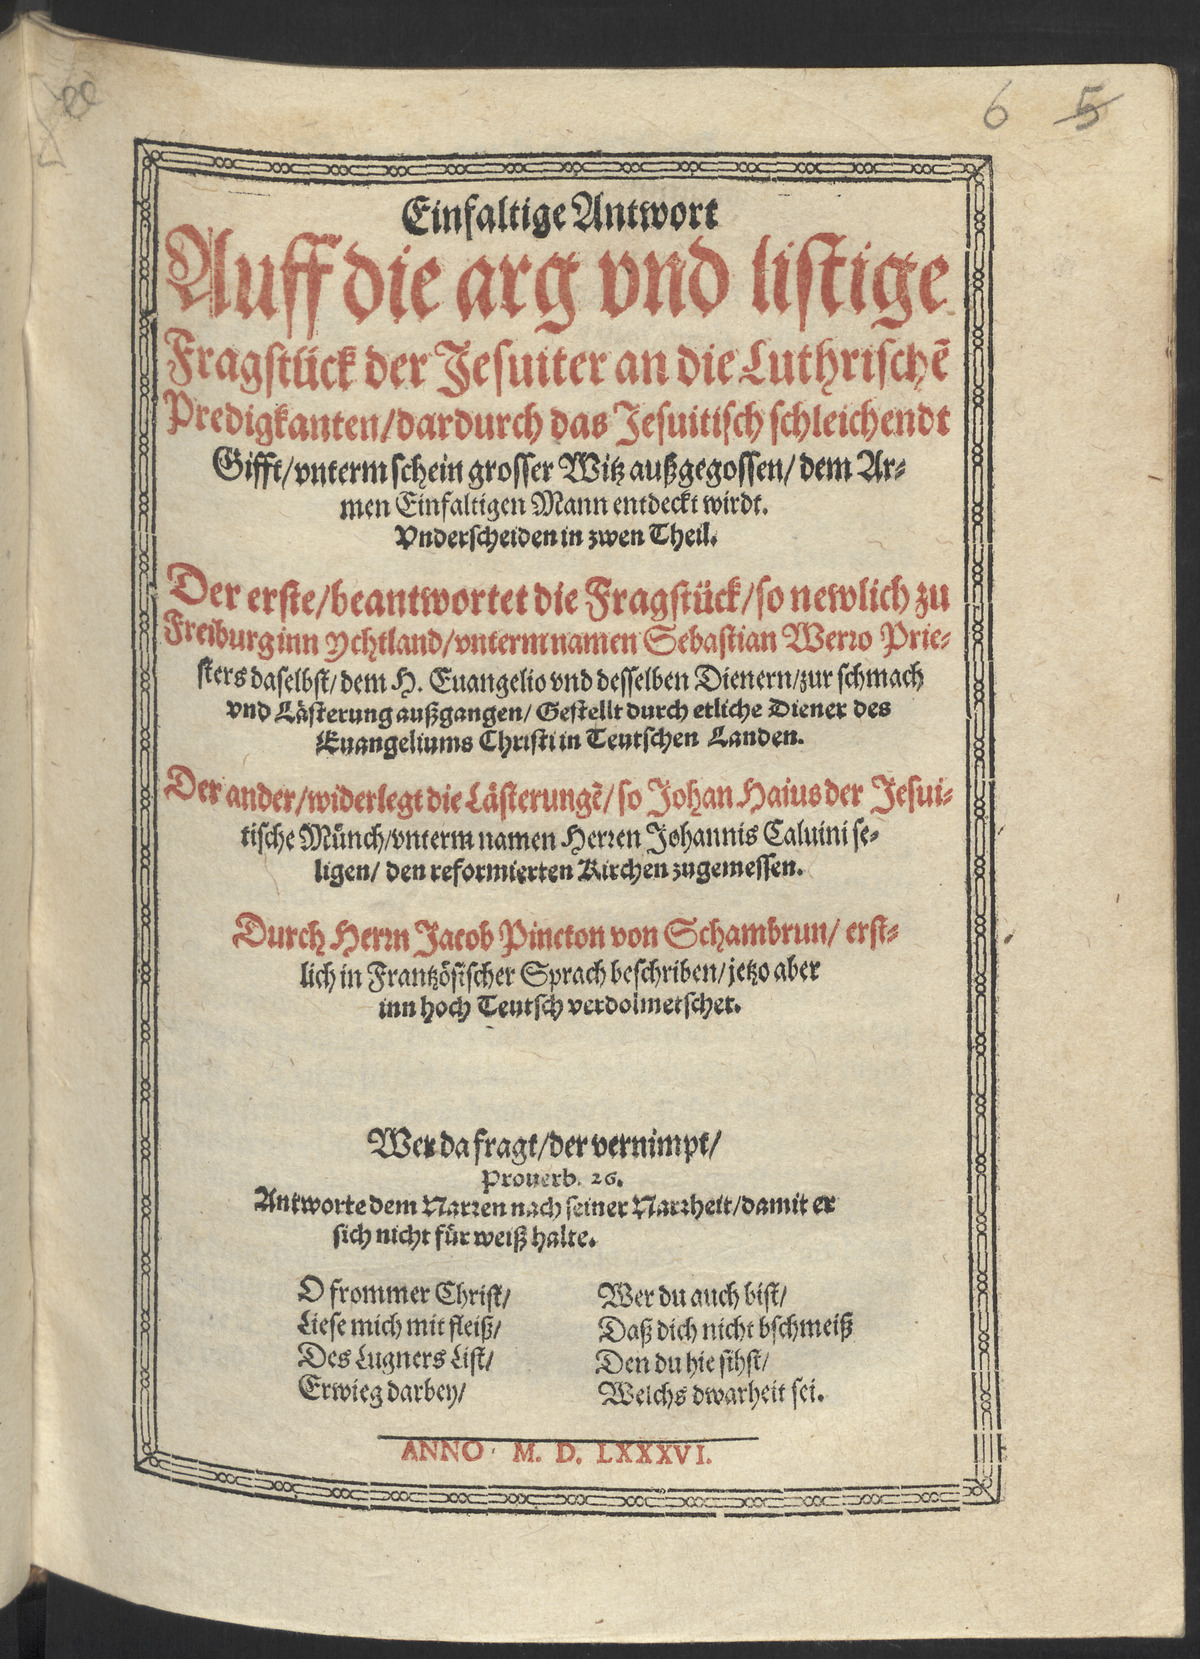 6 5
Einfaltige Antwort
Auff die arg vnd listige
Fragstück der Jesuiter an die Luthrischẽ
Predigkanten/dardurch das Jesuitisch schleichendt
Gifft/vnterm schein grosser Witz außgegossen/ dem Ar-
men Einfaltigen Mann entdeckt wirdt.
Vnderscheiden in zwen Theil.
Der erste/beantwortet die Fragstück/so newlich zu
Freiburg inn ychtland/vnterm namen Sebastian Werro Prie-
sters daselbst/dem H. Euangelio vnd desselben Dienern/zur schmach
vnd Lästerung außgangen/ Gestellt durch etliche Diener des
Euangeliums Christi in Teutschen Landen.
Der ander/widerlegt die Lästerungẽ/ so Johan Haius der Jesui-
tische Münch/vnterm namen Herren Johannis Caluini se-
ligen/ den reformierten Kirchen zugemessen.
Durch Herrn Jacob Pincton von Schambrun/ erst-
lich in Frantzösischer Sprach beschriben/jetzo aber
inn hoch Teutsch verdolmetschet.
Wer da fragt/der vernimpt/
Prouerb. 26.
Antworte dem Narren nach seiner Narrheit/damit er
sich nicht für weiß halte.
O frommer Christ/ Wer du auch bist/
Liese mich mit fleiß/ Daß dich nicht bschmeiß
Des Lugners List/ Den du hie sihst/
Erwieg darbey/ Welchs dwarheit sei.
ANNO M. D. LXXXVI.